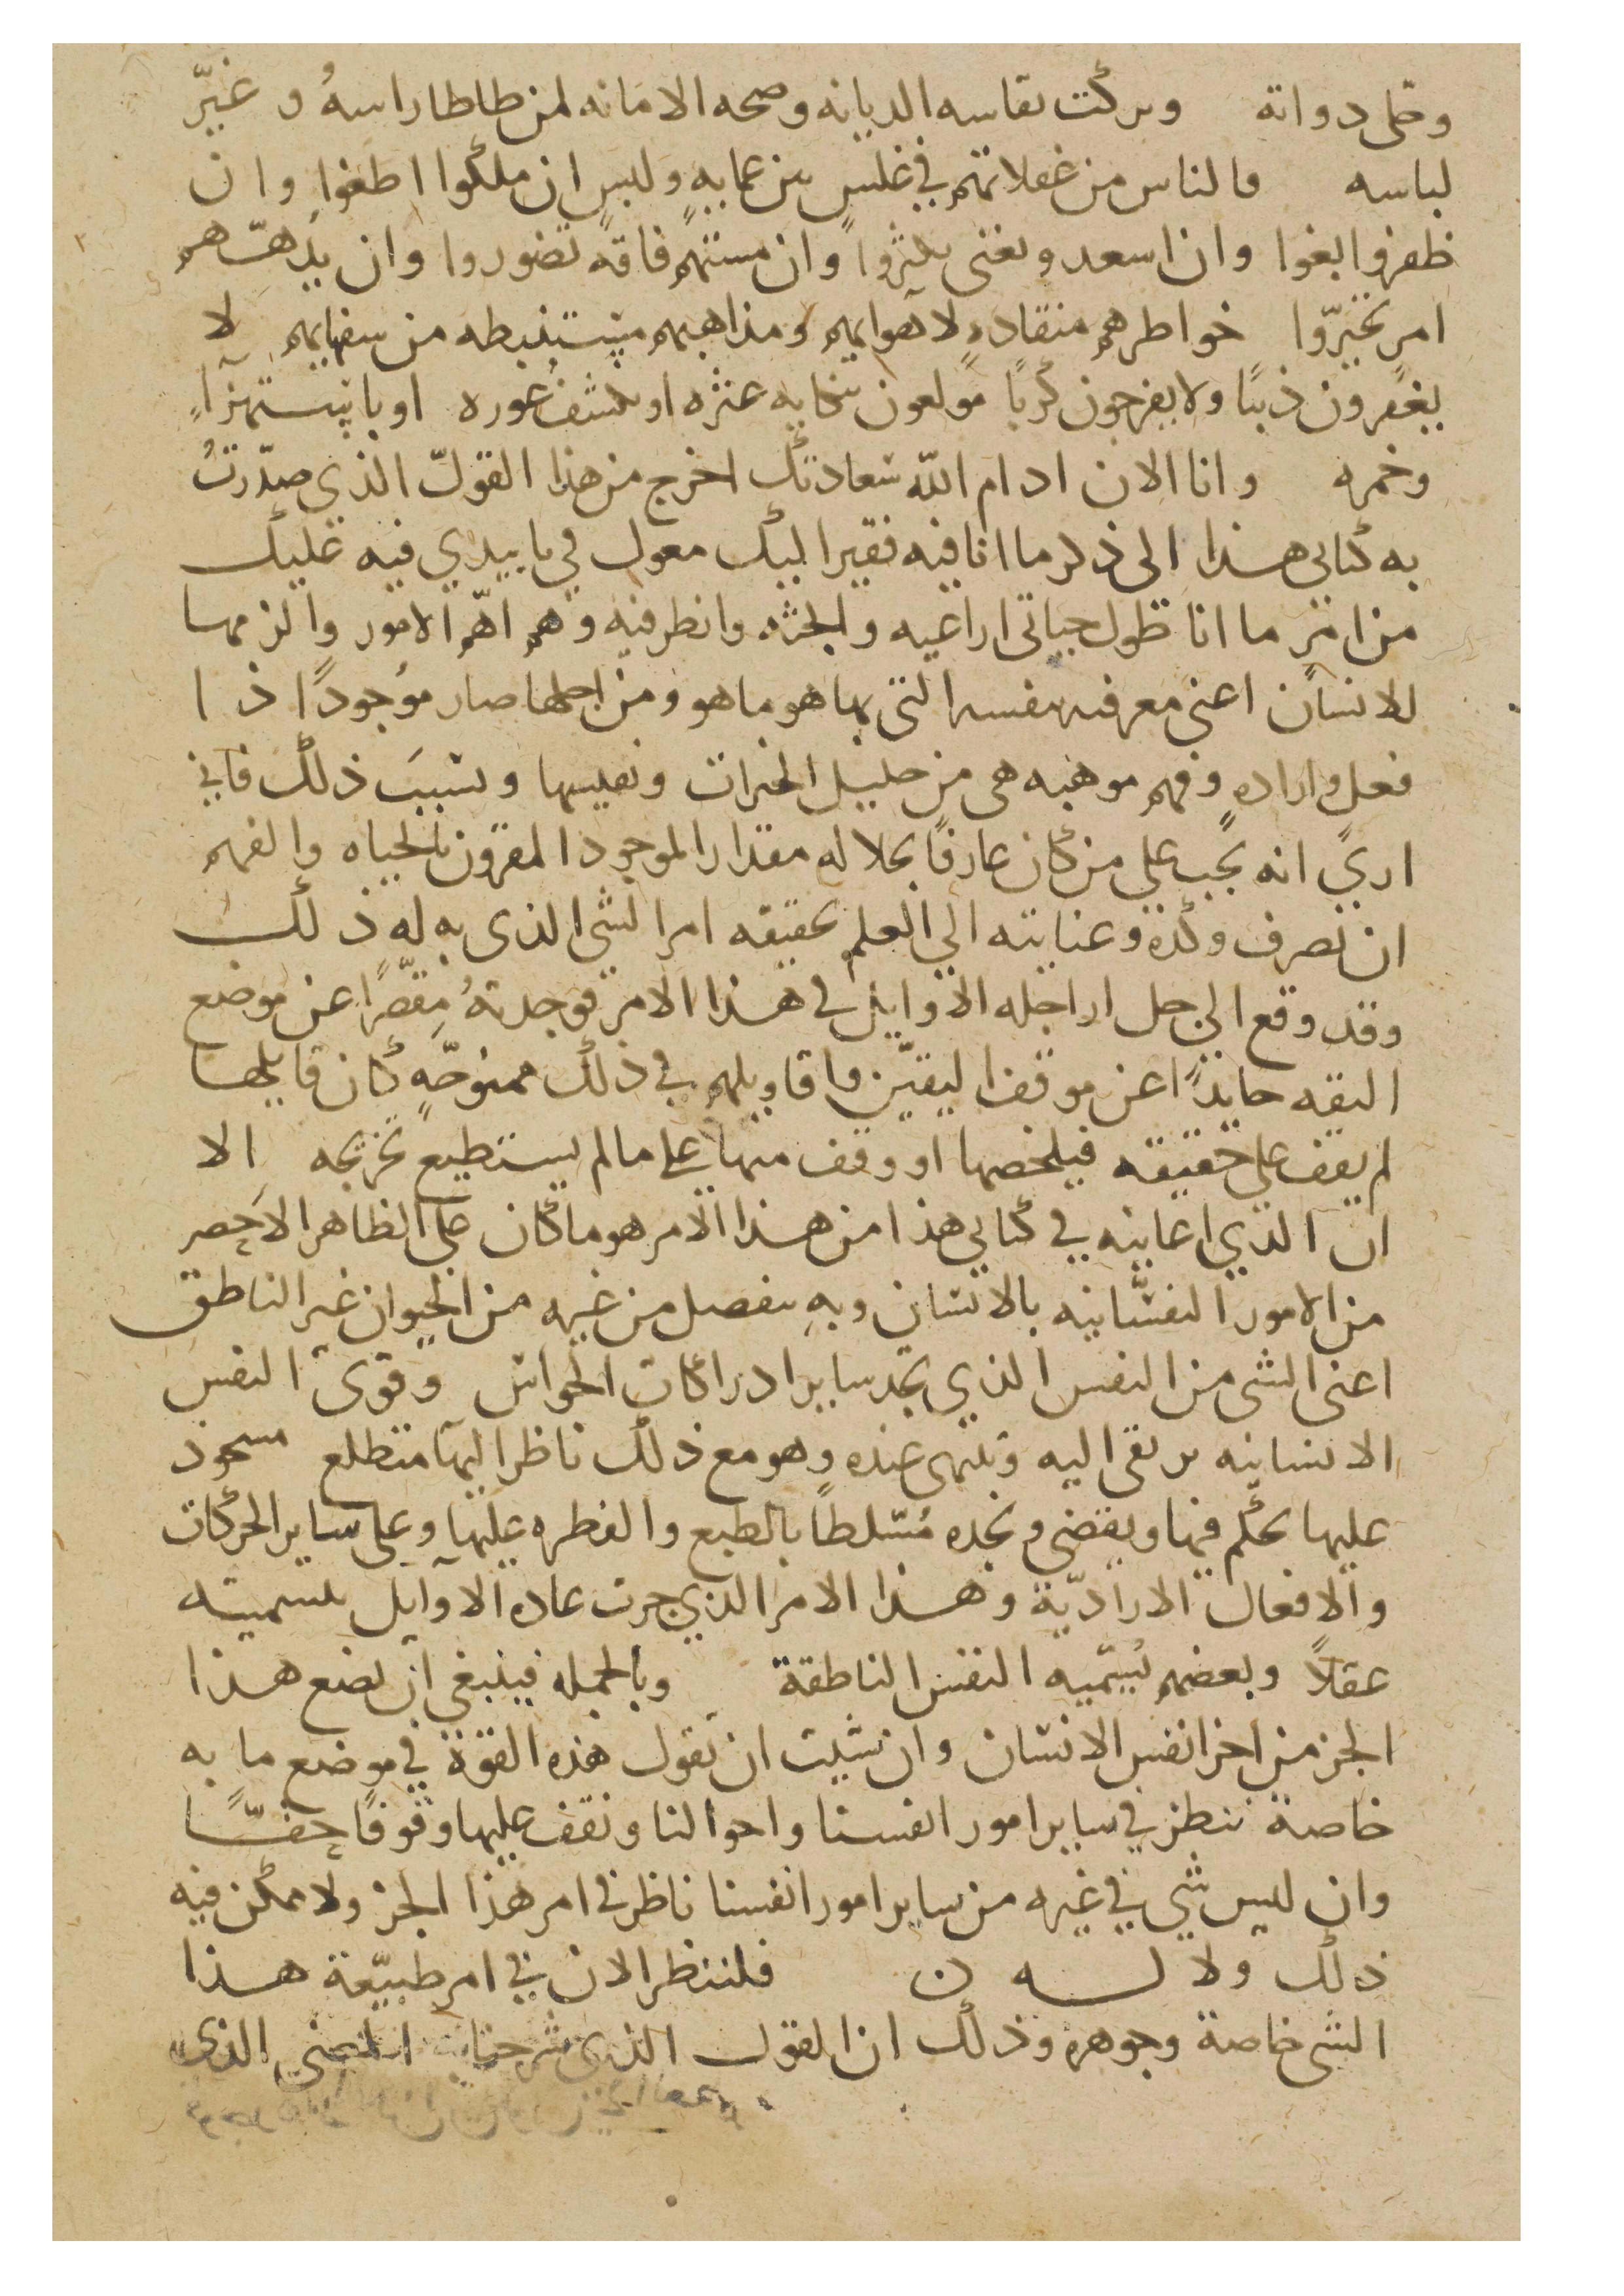 وحمل دواته وتركت نفاسه الديانه وصحه الامانه لمن طاطا راسهُ و غيَّر
لباسه فالناس من غفلاتهم في غلسٍ من عمايهٍ وليس ان ملكوا اطغوا وان
ظفروا بغوا وان اسعدو بغنى بثروا وان مستهم فاقه تضوروا وان بدههم
امر تحيرّوا خواطرهم منقاده لاهوايهم ومذاهبهم مستنبطه من سفهايهم لا
يغفرون ذنبًا ولا يفرجون كربًا مولعون بحكايه عثره او بكشف عوره او باستهزاءٍ
وانا الان ادام الله سعادتك اخرج من هذا القول الذي صدّرتُ
به كتابي هذا الى ذكر ما انا فيه فقير اليك معول في ما بيدي فيه عليك
من امرٍ ما انا طول حياتي اراعيه وابحثه وانظر فيه وهو اهم الامور والزمها
للانسان اعني معرفه نفسه التي بها هو ما هو ومن اجلها صار موجودًا ذا
فعل واراده وفهم موهبه هي من جليل الخيرات ونفيسها وبسبب ذلك فاني
ارى انه يجب على من كان عارفًا بجلاله مقدار الموجود المقرون بالحياه والفهم
ان يصرف وكده وعنايته الى العلم بحقيقه امر الشي الذي به له ذلك
وقد وقع الي جل الاوايل في هذا الامر فوجدتهُ مقصّرًا عن موضع
الثقه حايدًا عن موقف اليقين واقاويلهم في ذلك كان قايلها
لم يقف على حقيقته فيلخصها او وقف منها على ما لم يستطيع تخريجه الا
ان الذي اعاينه في كتابي هذا من هذا الامر هو ما كان على الظاهر الاخص
من الامور النفسانيه بالانسان وبه ينفصل من غيره من الحيوان غير الناطق
اعني الشي من النفس الذي نجد ساير ادراكات الحواس وقوى النفس
الانسانيه يرتقى اليه وتنتهى عنده وهو مع ذلك ناظر اليها متطلع مستحوذ
عليها يحكم فيها ويقضي ونجده مُتسلطًا بالطبع والفطره عليها وعلى ساير الحركات
والافعال الاراديّة وهذا الامر الذي جرت عاده الاوايل بتسميته
عقلاً وبعضهم يُسمّيه النفس الناطقة وبالجمله فينبغي ان نضع هذا
الجز من اجزا نفس الانسان وان شيت ان تقول هذه القوة في موضع ما به
خاصة ننظر في ساير امور انفسنا واحوالنا ونقف عليها وقوفًا حقًّا
وان ليس شي في غيره من ساير امور انفسنا ناظر في امر هذا الجز ولا يمكن فيه
ذلك ولا فلننظر الان في امر طبيعة هذا
الشي خاصة وجوهره وذلك ان القول الذي شرحنا به المعنى الذي